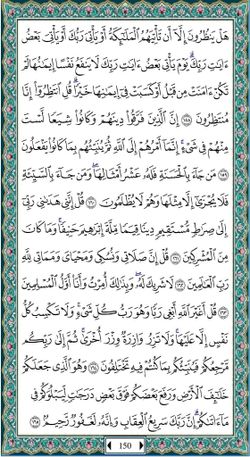 هَلْ يَنظُرُونَ إِلَّا أَن تَأْتِيَهُمُ الْمَلَٰئِكَةُ أَوْ يَأْتِىَ رَبُّكَ أَوْ يَأْتِىَ بَعْضُ
ءَايَٰتِ رَبِّكَ يَوْمَ يَأْتِى بَعْضُ ءَايَٰتِ رَبِّكَ لَا يَنفَعُ نَفْسًا إِيمَٰنُهَا لَمْ
تَكُنْ ءَامَنَتْ مِن قَبْلُ أَوْ كَسَبَتْ فِىٓ إِيمَٰنِهَا خَيْرًا قُلِ انتَظِرُوٓا۟ إِنَّا
مُنتَظِرُونَ ١٥٨ إِنَّ الَّذِينَ فَرَّقُوا۟ دِينَهُمْ وَكَانُوا۟ شِيَعًا لَّسْتَ
مِنْهُمْ فِى شَىْءٍ إِنَّمَآ أَمْرُهُمْ إِلَى اللَّهِ ثُمَّ يُنَبِّئُهُم بِمَا كَانُوا۟ يَفْعَلُونَ
١٥٩ مَن جَآءَ بِالْحَسَنَةِ فَلَهُۥ عَشْرُ أَمْثَالِهَا وَمَن جَآءَ بِالسَّيِّئَةِ
فَلَا يُجْزَىٰٓ إِلَّا مِثْلَهَا وَهُمْ لَا يُظْلَمُونَ ١٦٠ قُلْ إِنَّنِى هَدَىٰنِى رَبِّىٓ
إِلَىٰ صِرَٰطٍ مُّسْتَقِيمٍ دِينًا قِيَمًا مِّلَّةَ إِبْرَٰهِيمَ حَنِيفًا وَمَا كَانَ
مِنَ الْمُشْرِكِينَ ١٦١ قُلْ إِنَّ صَلَاتِى وَنُسُكِى وَمَحْيَاىَ وَمَمَاتِى لِلَّهِ
رَبِّ الْعَٰلَمِينَ ١٦٢ لَا شَرِيكَ لَهُۥ وَبِذَٰلِكَ أُمِرْتُ وَأَنَا۠ أَوَّلُ الْمُسْلِمِينَ
١٦٣ قُلْ أَغَيْرَ اللَّهِ أَبْغِى رَبًّا وَهُوَ رَبُّ كُلِّ شَىْءٍ وَلَا تَكْسِبُ كُلُّ
نَفْسٍ إِلَّا عَلَيْهَا وَلَا تَزِرُ وَازِرَةٌ وِزْرَ أُخْرَىٰ ثُمَّ إِلَىٰ رَبِّكُم
مَّرْجِعُكُمْ فَيُنَبِّئُكُم بِمَا كُنتُمْ فِيهِ تَخْتَلِفُونَ ١٦٤ وَهُوَ الَّذِى جَعَلَكُمْ
خَلَٰٓئِفَ الْأَرْضِ وَرَفَعَ بَعْضَكُمْ فَوْقَ بَعْضٍ دَرَجَٰتٍ لِّيَبْلُوَكُمْ فِى
مَآ ءَاتَىٰكُمْ إِنَّ رَبَّكَ سَرِيعُ الْعِقَابِ وَإِنَّهُۥ لَغَفُورٌ رَّحِيمٌ ١٦٥
150